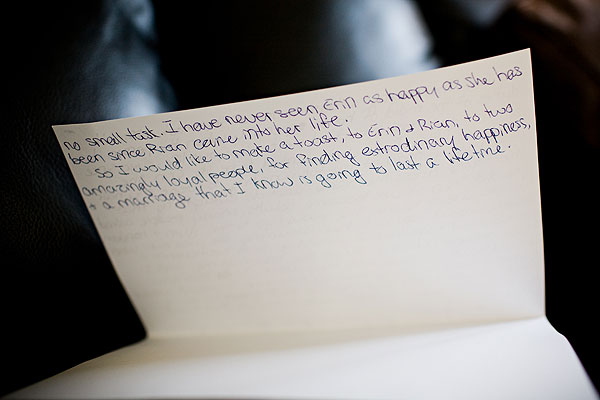 no small task. I have never seen Erin as happy as she has
been since Rian came into her life.
so I would like to make a toast, to Erin + Rian, to two
amazingly loyal people, for finding extrodinary happiness,
+ a marriage that I know is going to last a lifetime.